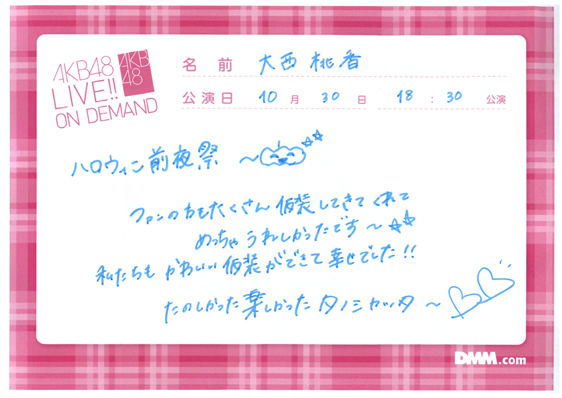 AKB48
LIVE!!
ON DEMAND
AKB
48
名 前 大西 桃香
公演日 10 月 30 日 18 : 30 公演
ハロウィン前夜祭 〜
ファンの方もたくさん仮装してきてくれて
めっちゃうれしかったです〜☆☆
私たちも かわいい仮装ができて幸せでした!!
たのしかった楽しかったタノシカッタ〜
DMM.com